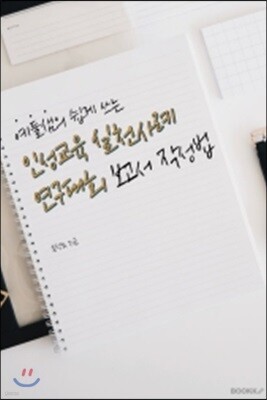 예돌샘의 쉽게 쓰는
인성교육 실천사례
연구대회 보고서 작성법
지음
BOOKK